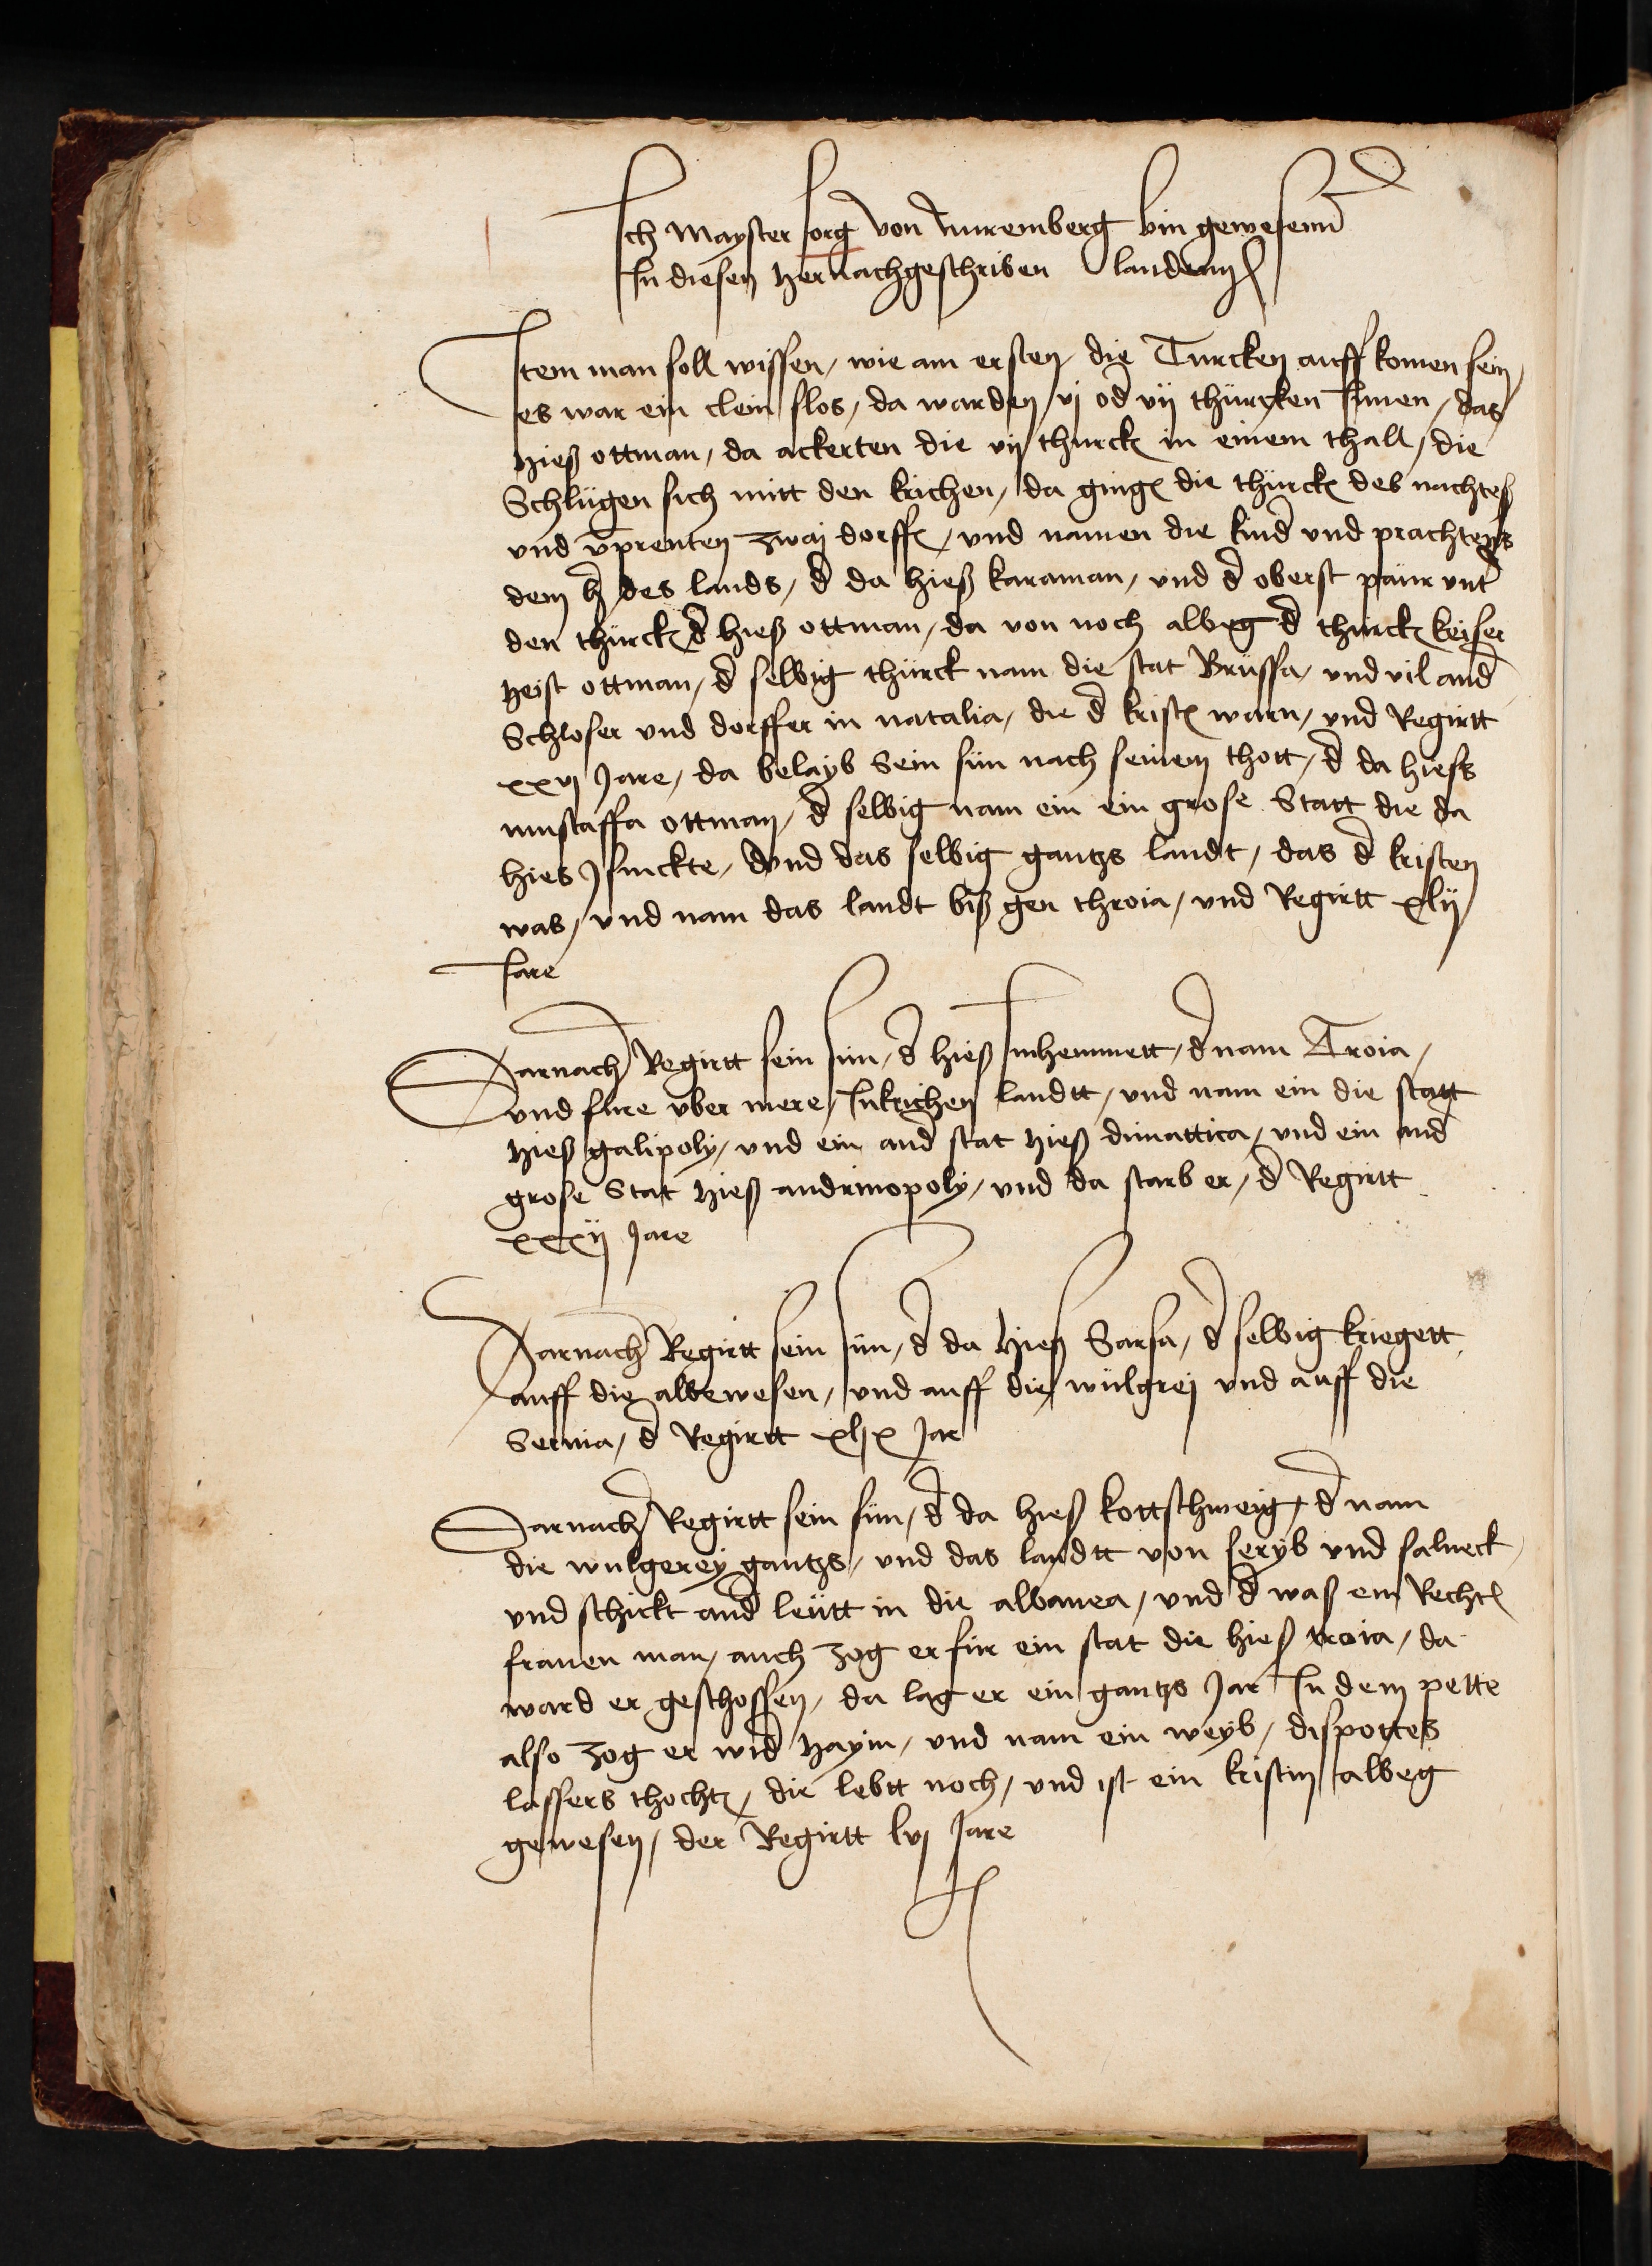 Ich Mayster Jorg von Nuremberg bin gewesenn
In diesen hernachgeschriben landenn
Item man soll wissen / wie am ersten die Turcken auff komen sein /
es war ein clein slos / da warden vj od vij thürcken Innen / das
hieß ottman / da ackerten die vij thurck in einem thall / die
Schlügen sich mitt den krichen / da ging die thürck des nachtes
vnd vprenten zwaj dorff / vnd namen die kind vnd prachtens
dem h des lands / d da hieß karaman / vnd d oberst paür vnt
den thürck d hieß ottman / da von noch albeg d thürck keiser
heist ottman / d selbig thürck nam die stat Brüssa / vnd vil and
Schloser vnd dorffer in natalia / die d krist warn / vnd Regirtt
xxvj Jare / da belayb Sein sün nach seinem thott / d da hiess
mustaffa ottman / d selbig nam ein ein grose Statt die da
hies Jsnickte / vnd das selbig gantzs landt / das d kristen
was / vnd nam das landt biß gen throia / vnd Regirtt xlij
Jare
Darnach Regirtt sein sün / d hieß mhemmett / d nam Troia /
vnd fure vber mere / In krichen landtt / vnd nam ein die statt
hieß galipoly / vnd ein and stat hieß dimattica / vnd ein and
grose Stat hieß andrinopoly / vnd da starb er / d Regirtt
xxxij Jare
Darnach Regirtt sein sün / d da hieß Sarsa / d selbig kriegett
auff die albewesen / vnd auff die wulgrej vnd auff die
Seruia / d Regirtt xlix Jar
Darnach Regirtt sein sün / d da hieß kottschweig / d nam
die wulgerey gantzs / vnd das landtt von seryb vnd salneck
vnd schickt and leütt in die albanea / vnd d waß ein Recht
frauen man / auch zog er für ein stat die hieß troia / da
ward er geschossen / da lag er ein gantzs Jar In dem pette
also zog er wid haym / vnd nam ein weyb / dispottes
lassers thocht / die lebtt noch / vnd ist ein kristin albeg
gewesen / der Regirtt lvj Jare